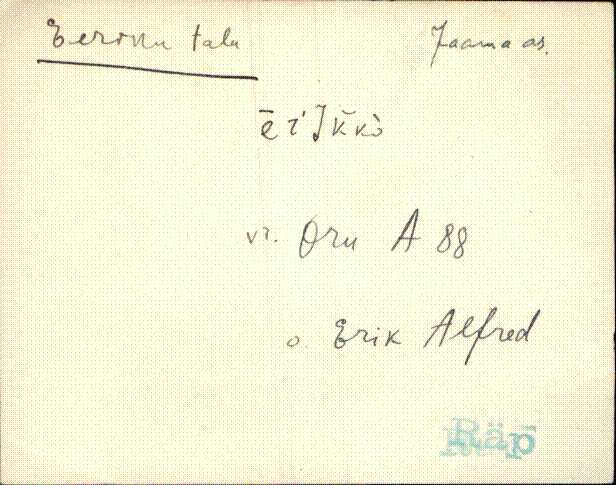 Eeronu talu Jaama as.
vr. Oru A 88
o. Erik Alfred
Räp